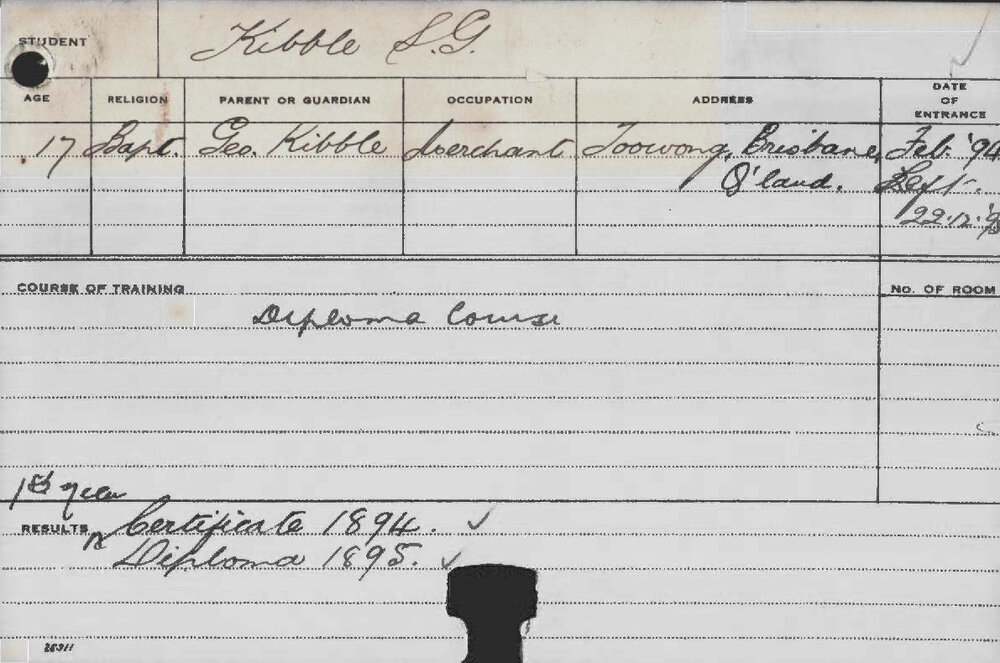 STUDENT Kibble S.G.
AGE RELIGION PARENT OR GUARDIAN OCCUPATION ADDRESS DATE OF ENTRANCE
17 Bapt. Geo. Kibble Merchant Toowong, Brisbane, Feb. '94
Q'land. Left.
22.12.'95
COURSE OF TRAINING No. OF ROOM
Diploma Course
1st year
RESULTS Certificate 1894.
Diploma 1895.